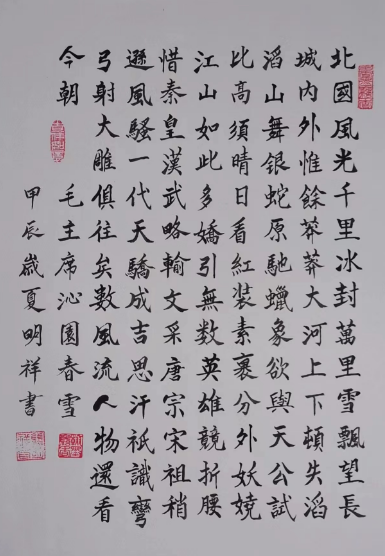 北國風光千里冰封萬里雪飄望長
城內外惟餘莽莽大河上下頓失滔
滔山舞银蛇原馳蠟象欲與天公試
比高須晴日看紅裝素裹分外妖嬈
江山如此多嬌引無数英雄競折腰
惜秦皇漢武略輸文采唐宗宋祖稍
遜風騷一代天驕成吉思汗祇識彎
弓射大雕俱往矣数風流人物還看
今朝 毛主席沁園春雪
甲辰歲夏明祥書